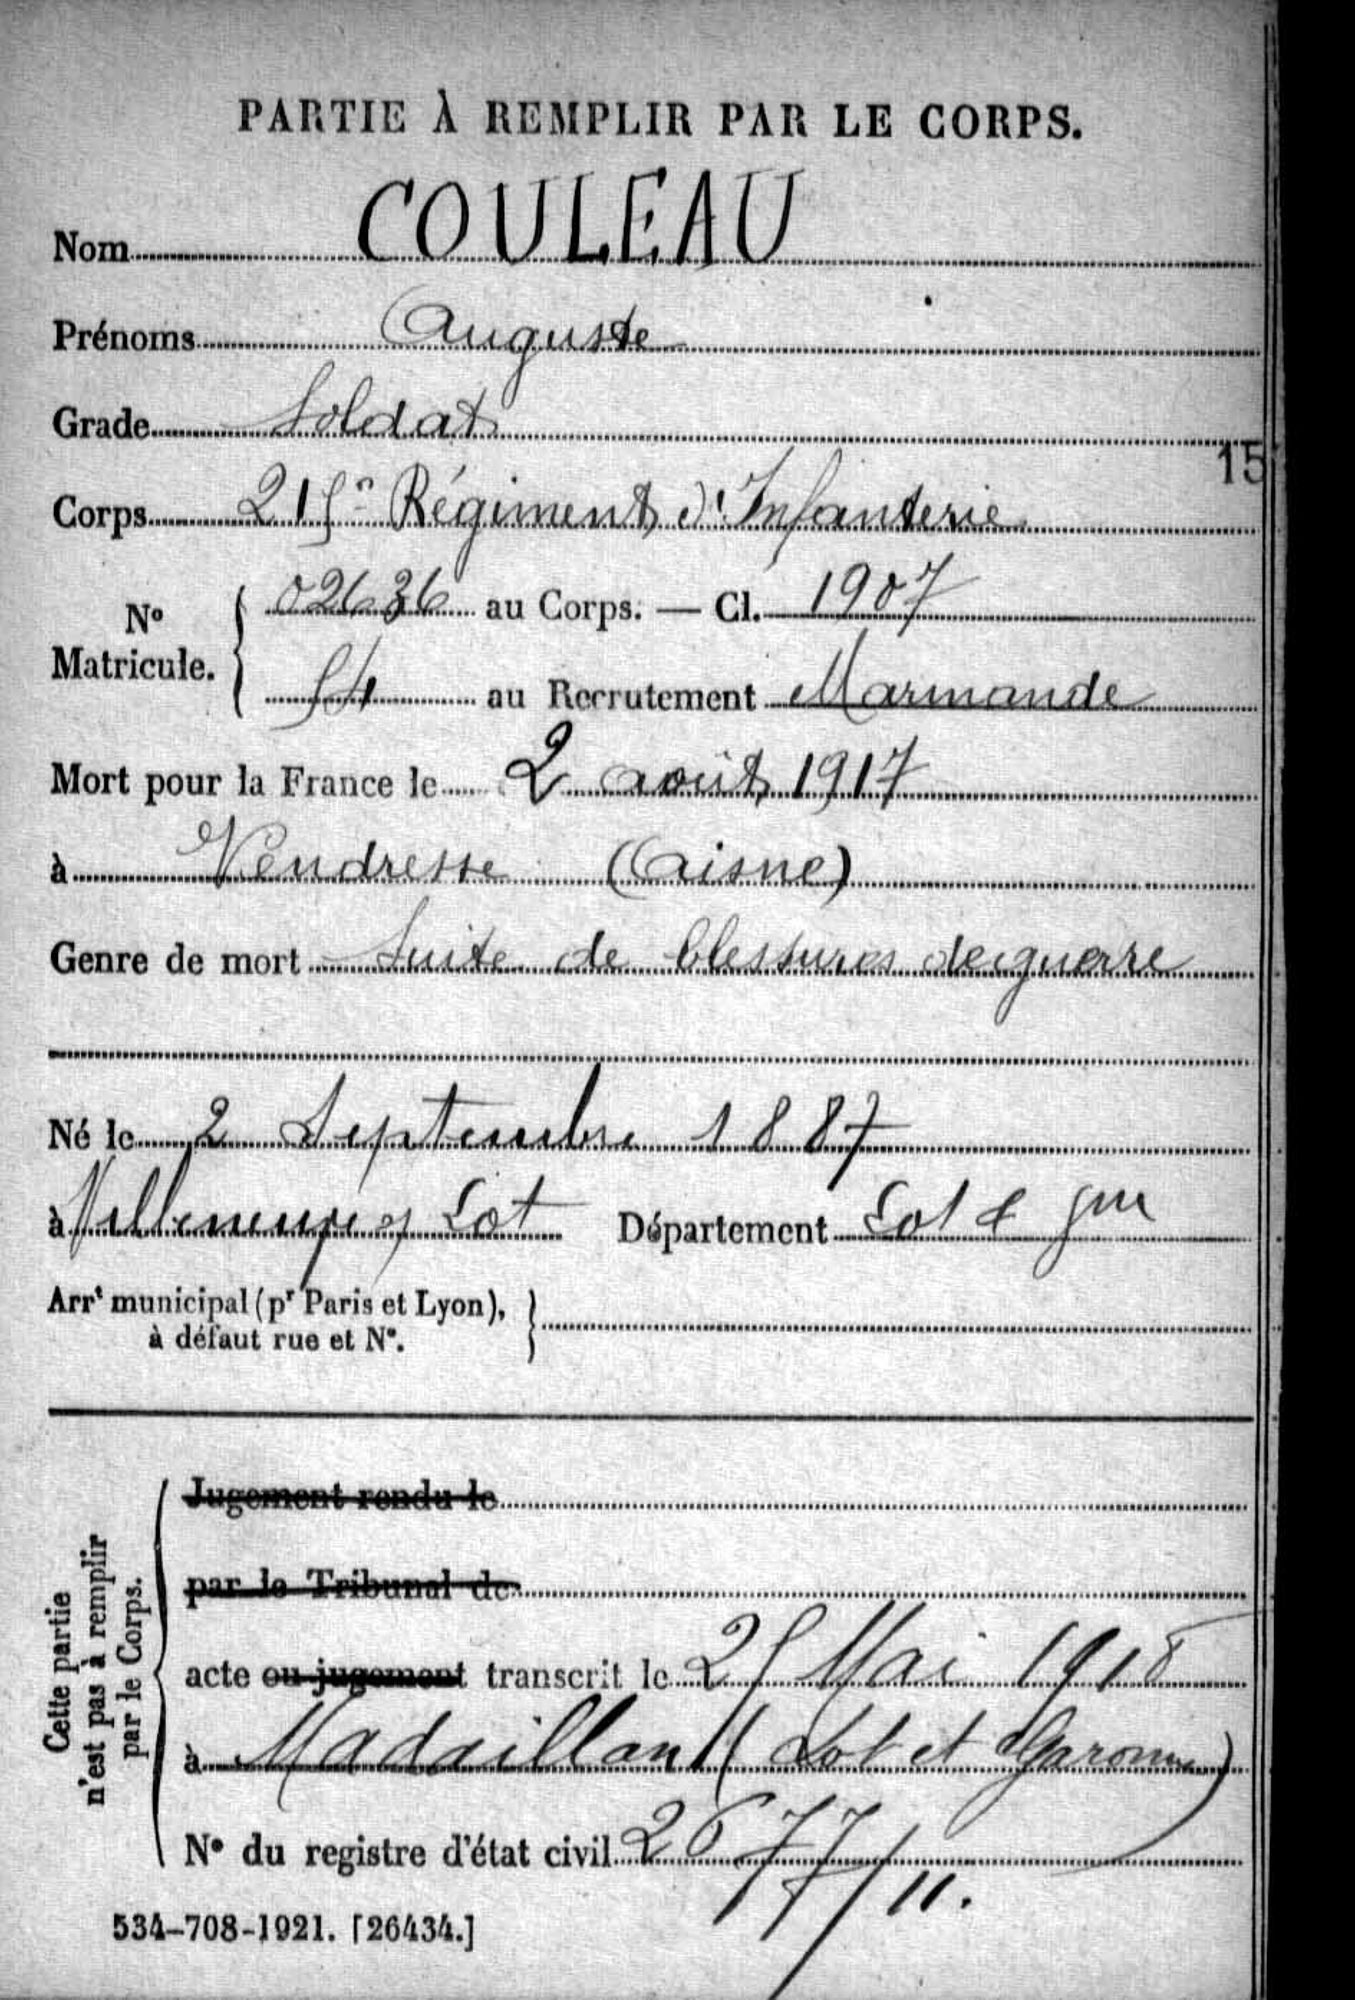 PARTIE À REMPLIR PAR LE CORPS.
Nom COULEAU
Prénoms Auguste
Grade Soldat
15
Corps 215e Régiment d'Infanterie
N° Matricule. 02636 au Corps. — Cl. 1907
54 au Recrutement Marmande
Mort pour la France le 2 août 1917
à Vendresse (Aisne)
Genre de mort Suite de blessures de guerre
Né le 2 Septembre 1887
à Villeneuve s/ Lot Département Lot & Gne
Arrt municipal (pr Paris et Lyon),
à défaut rue et N°.
Cette partie
n'est pas à remplir
par le Corps.
Jugement rendu le
par le Tribunal de
acte ou jugement transcrit le 25 Mai 1918
à Madaillan (Lot et Garonne)
N° du registre d'état civil 2677/11.
534-708-1921. [26434.]